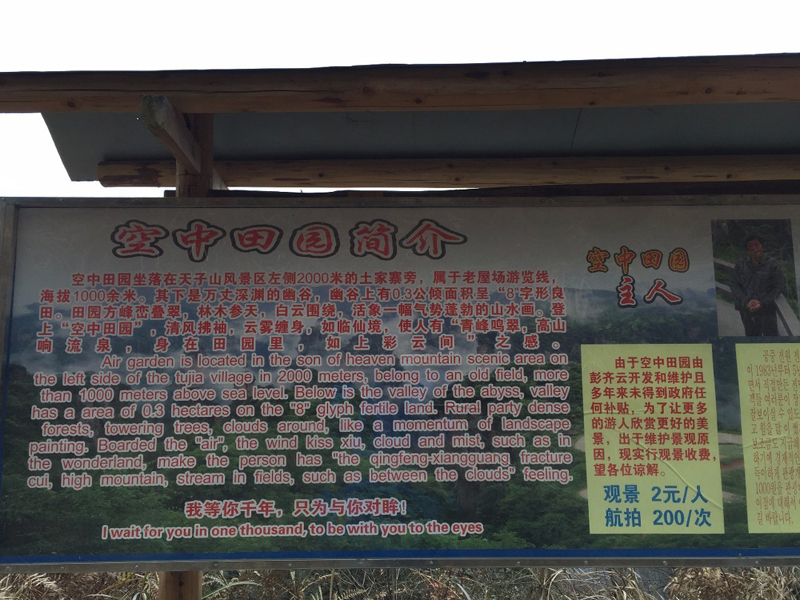 空中田园简介
空中田园坐落在天子山风景区左侧2000米的土家寨旁，属于老屋场游览线，
海拔1000余米。其下是万丈深渊的幽谷，幽谷上有0.3公倾面积呈“8”字形良
田。田园方峰峦叠翠，林木参天，白云围绕，活象一幅气势蓬勃的山水画。登
上“空中田园”，清风拂袖，云雾缠身，如临仙境，使人有“青峰鸣翠，高山
响流泉，身在田园里，如上彩云间”之感。
Air garden is located in the son of heaven mountain scenic area on
the left side of the tujia village in 2000 meters, belong to an old field, more
than 1000 meters above sea level. Below is the valley of the abyss, valley
has a area of 0.3 hectares on the "8" glyph fertile land. Rural party dense
forests, towering trees, clouds around, like a momentum of landscape
painting. Boarded the "air", the wind kiss xiu, cloud and mist, such as in
the wonderland, make the person has "the qingfeng-xiangguang fracture
cui, high mountain, stream in fields, such as between the clouds" feeling.
我等你千年，只为与你对眸！
I wait for you in one thousand, to be with you to the eyes
空中田园
主人
由于空中田园由
彭齐云开发和维护且
多年来未得到政府任
何补贴，为了让更多
的游人欣赏更好的美
景，出于维护景观原
因，现实行观景收费，
望各位谅解。
观景 2元/人
航拍 200/次